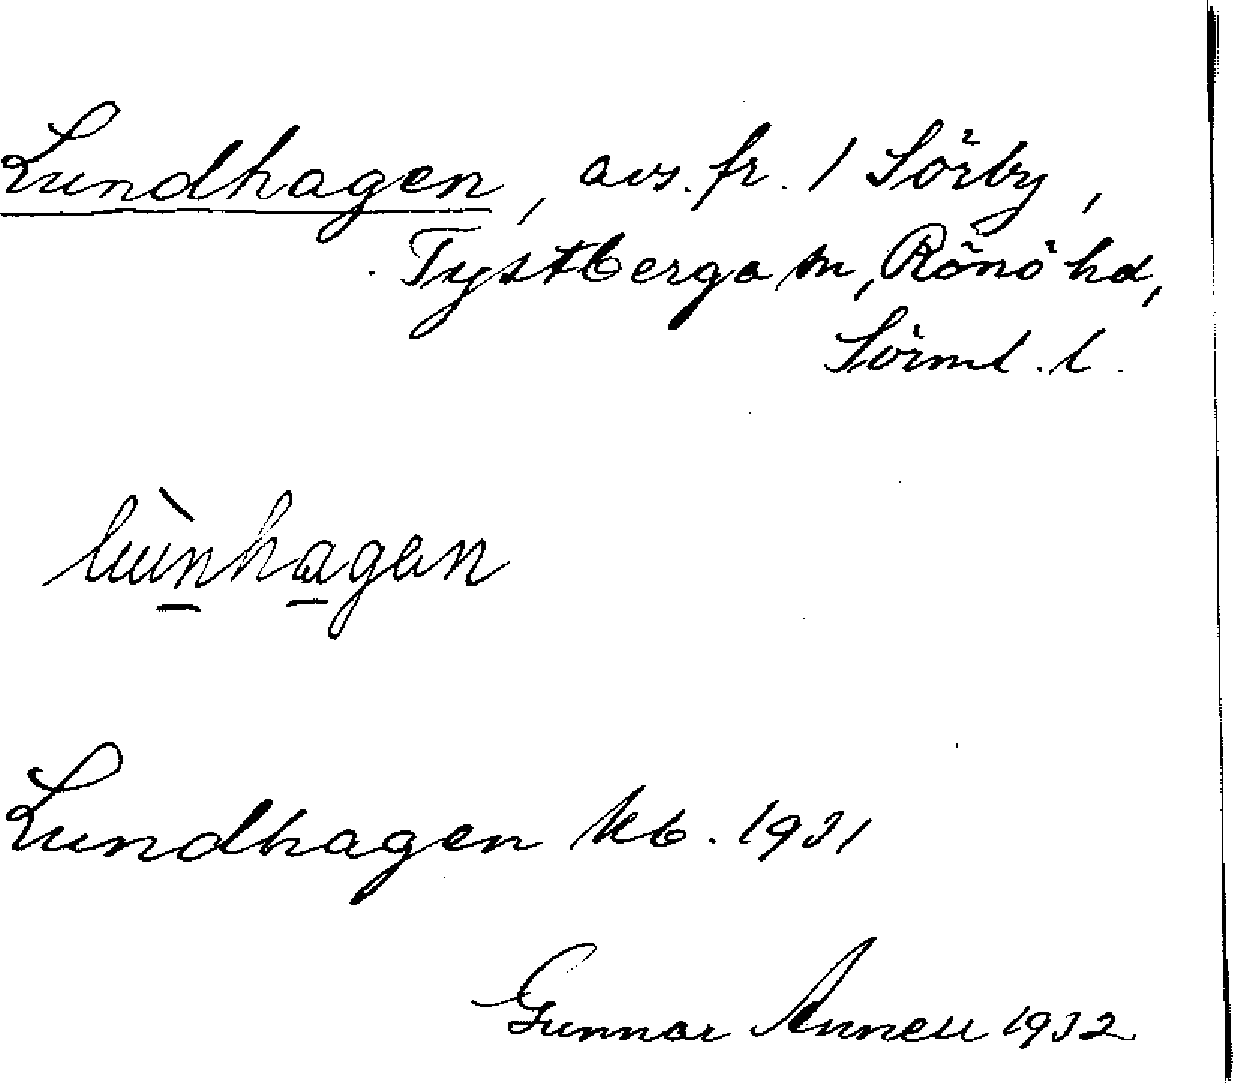 Lundhagen, avs. fr. 1 Sörby,
Tystberga sn, Rönö hd,
Sörml. l.
lùnhagan
Lundhagen kb. 1931
Gunnar Annell 1932